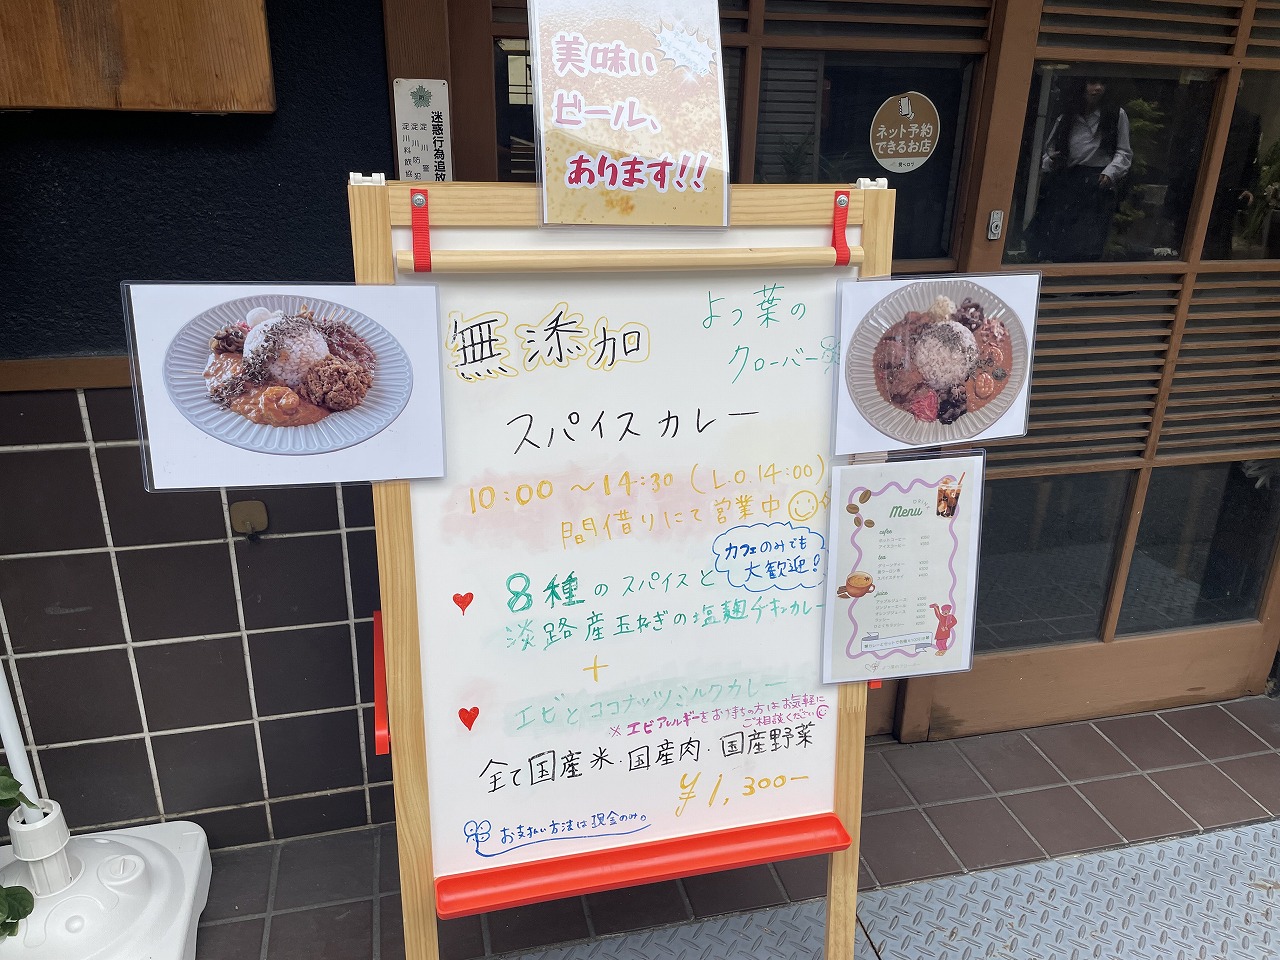 美味い
ビール、
あります!!
迷惑行為追放
ネット予約
できるお店
食べログ
無添加
よつ葉の
クローバー
スパイスカレー
10:00 〜 14:30 (L.O.14:00)
間借りにて営業中
カフェのみでも
大歓迎!
8種のスパイスと
淡路産玉ねぎの塩麹チキンカレー
+
エビとココナッツミルクカレー
※エビアレルギーをお持ちの方はお気軽に
ご相談ください
全て国産米・国産肉・国産野菜
¥1,300-
お支払い方法は現金のみ。
Menu
cafee
ホットコーヒー
アイスコーヒー
tea
juice